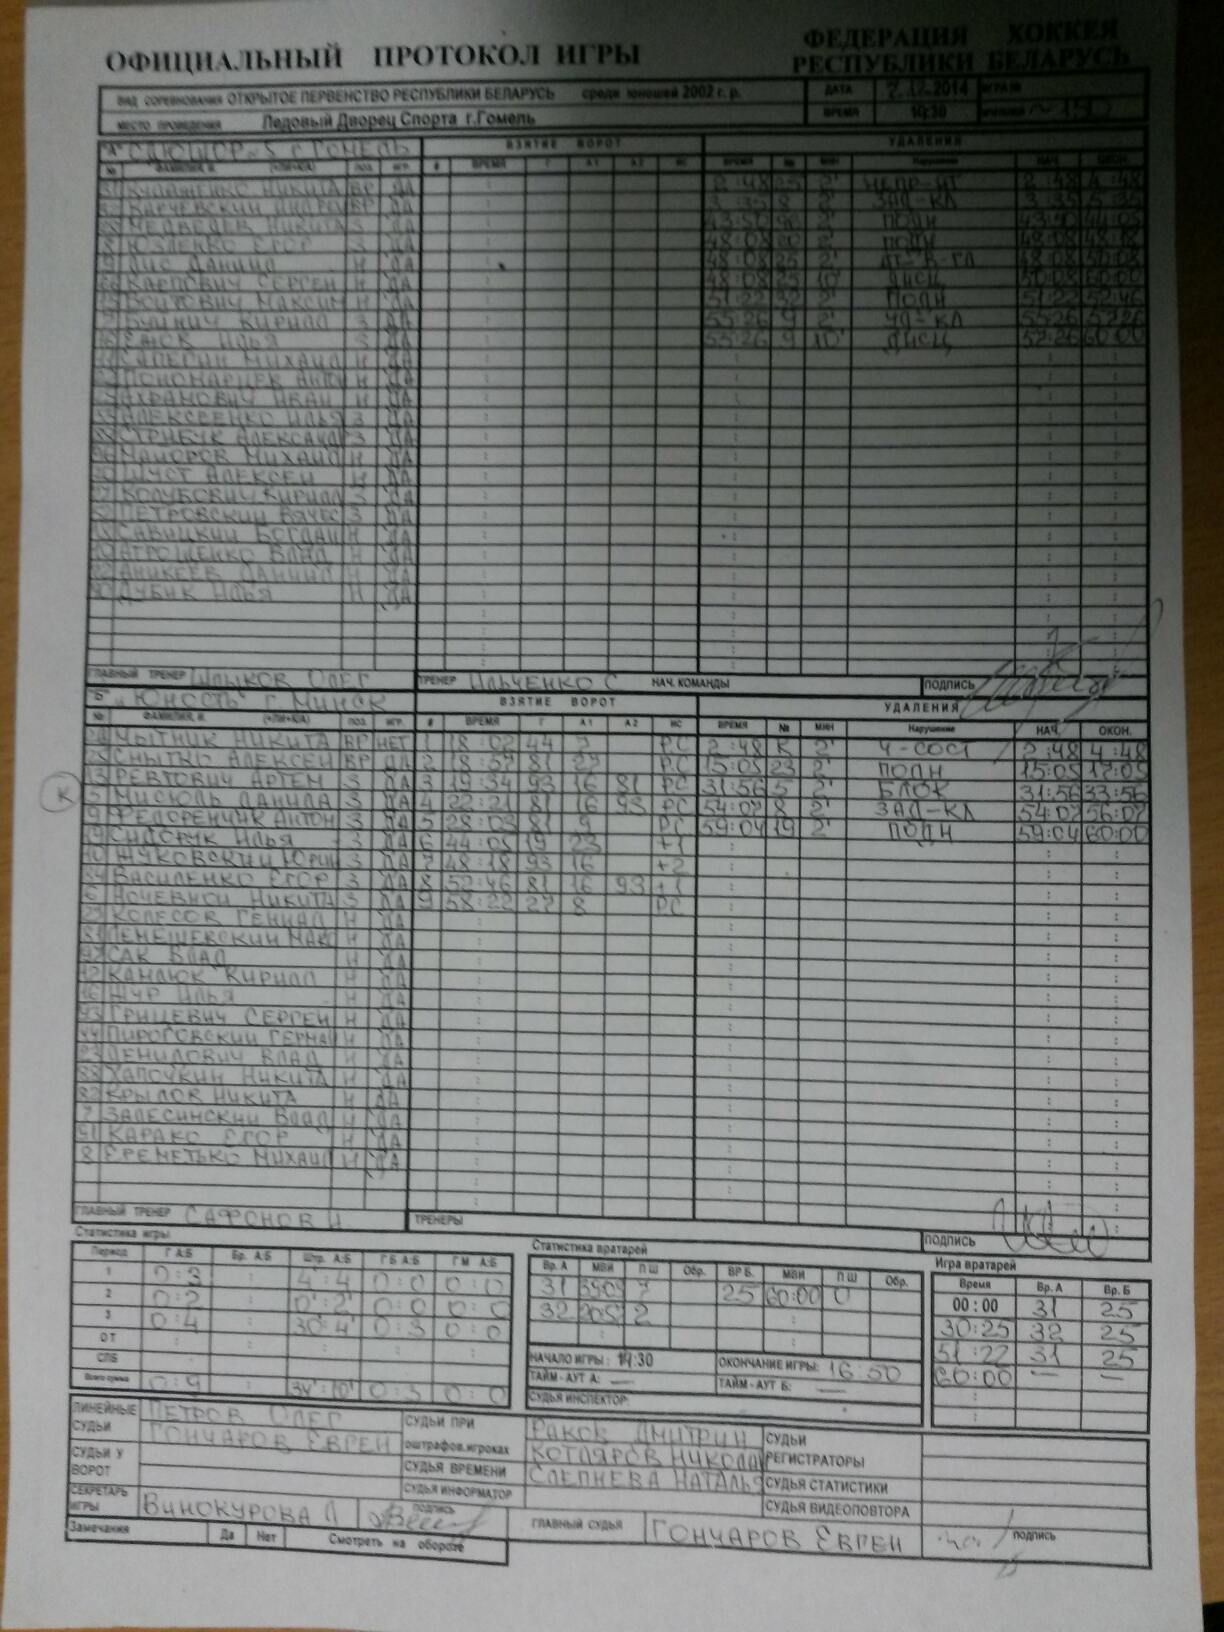 ОФИЦИАЛЬНЫЙ ПРОТОКОЛ ИГРЫ
ФЕДЕРАЦИЯ ХОККЕЯ
РЕСПУБЛИКИ БЕЛАРУСЬ
ВИД СОРЕВНОВАНИЯ ОТКРЫТОЕ ПЕРВЕНСТВО РЕСПУБЛИКИ БЕЛАРУСЬ среди юношей 2002 г. р. ДАТА 7.12.2014 ИГРА №
МЕСТО ПРОВЕДЕНИЯ Ледовый Дворец Спорта г.Гомель ВРЕМЯ ~150
"А" СДЮШОР-5 г ГОМЕЛЬ ВЗЯТИЕ ВОРОТ УДАЛЕНИЯ
№ ФАМИЛИЯ, И. ПОЗ ИГР. # ВРЕМЯ Г А1 А2 ИС ВРЕМЯ № МИН Нарушение НАЧ. ОКОН.
НИКИТА ВР ДА 2:48 25 2' НЕПР-АТ 2:48 4:48
КАРЧЕВСКИЙ ВР ДА 3:35 8 2' ЗАД-КЛ 3:35 5:35
МЕДВЕДЕВ НИКИТА З ДА 43:50 2' ПОДН 43:50 44:05
8 ЕГОР З ДА 48:08 20 2' ПОДН 48:08 48:18
ЛИС ДАНИИЛ Н ДА 48:08 25 2' АТ-В-ГЛ 48:08 50:08
КАРПОВИЧ СЕРГЕЙ Н ДА 48:08 25 10' ДИСЦ 50:08 60:00
ВОЙТОВИЧ МАКСИМ Н ДА 51:22 32 2' ПОДН 51:22 52:46
КИРИЛЛ З ДА 55:26 9 2' УД-КЛ 55:26 57:26
ИЛЬЯ З ДА 55:26 9 10' ДИСЦ 57:26 60:00
САПЕГИН МИХАИЛ Н ДА
АНТОН Н ДА
АХРАМОВИЧ ИВАН Н ДА
АЛЕКСЕЕНКО ИЛЬЯ З ДА
СТРИБУК АЛЕКСАНДР З ДА
МАЙОРОВ МИХАИЛ Н ДА
ШУСТ АЛЕКСЕЙ Н ДА
КИРИЛЛ З ДА
ПЕТРОВСКИЙ ВЯЧЕС З ДА
САВИЦКИЙ БОГДАН Н ДА
АТРОЩЕНКО ВЛАД Н ДА
АНИКЕЕВ ДАНИИЛ Н ДА
ДУБИК ИЛЬЯ Н ДА
ГЛАВНЫЙ ТРЕНЕР ОЛЕГ ТРЕНЕР ИЛЬЧЕНКО С НАЧ. КОМАНДЫ ПОДПИСЬ
"Б" "ЮНОСТЬ" г МИНСК ВЗЯТИЕ ВОРОТ УДАЛЕНИЯ
№ ФАМИЛИЯ, И. ПОЗ ИГР. # ВРЕМЯ Г А1 А2 ИС ВРЕМЯ № МИН Нарушение НАЧ. ОКОН.
ЧЫТНИК НИКИТА ВР НЕТ 1 18:02 44 7 РС 2:48 К 2' Ч-СОСТ 2:48 4:48
25 СНЫТКО АЛЕКСЕЙ ВР ДА 2 18:57 81 27 РС 15:05 23 2' ПОДН 15:05 17:05
13 РЕВТОВИЧ АРТЕМ З ДА 3 19:34 93 16 81 РС 31:56 5 2' БЛОК 31:56 33:56
К 5 МИСЮЛЬ ДАНИЛА З ДА 4 22:21 81 16 93 РС 54:07 8 2' ЗАД-КЛ 54:07 56:07
9 ФЕДОРЕНЧИК АНТОН З ДА 5 28:03 81 9 РС 59:04 19 2' ПОДН 59:04 60:00
19 СИДОРУК ИЛЬЯ З ДА 6 44:05 19 23 +1
10 ЖУКОВСКИЙ ЮРИЙ З ДА 7 48:18 93 16 +2
84 ВАСИЛЕНКО ЕГОР З ДА 8 52:46 81 16 93 +1
6 НОЧЕВНОЙ НИКИТА З ДА 9 58:22 27 8 РС
КОЛЕСОВ ГЕННАД Н ДА
81 ЛЕМЕШЕВСКИЙ МАКС Н ДА
САК ВЛАД Н ДА
КАМЛЮК КИРИЛЛ Н ДА
16 ЖУР ИЛЬЯ Н ДА
93 ГРИЦЕВИЧ СЕРГЕЙ Н ДА
44 ПИРОГОВСКИЙ ГЕРМА Н ДА
23 ДЕНИЛОВИЧ ВЛАД Н ДА
88 ХАПОЧКИН НИКИТА Н ДА
КРЫЛОВ НИКИТА Н ДА
7 ЗАЛЕСИНСКИЙ ВЛАД Н ДА
51 КАРАКО ЕГОР Н ДА
8 ЕРЕМЕТЬКО МИХАИЛ Н ДА
ГЛАВНЫЙ ТРЕНЕР САФОНОВ И. ТРЕНЕРЫ ПОДПИСЬ
Статистика игры Статистика вратарей Игра вратарей
Период Г А:Б Бр. А:Б Штр. А:Б ГБ А:Б ГМ А:Б Вр. А МВИ ПШ Обр. ВР Б. МВИ ПШ Обр. Время Вр. А Вр. Б
1 0:3 : 4':4' 0:0 0:0 31 39:03 7 25 60:00 0 00:00 31 25
2 0:2 : 0':2' 0:0 0:0 32 20:57 2 30:25 32 25
3 0:4 : 30':4' 0:3 0:0 51:22 31 25
ОТ НАЧАЛО ИГРЫ: 14:30 ОКОНЧАНИЕ ИГРЫ: 16:50 60:00 — —
СПБ ТАЙМ-АУТ А: — ТАЙМ-АУТ Б: —
Всего сумма 0:9 34':10' 0:3 0:0 СУДЬЯ ИНСПЕКТОР:
ЛИНЕЙНЫЕ СУДЬИ ПЕТРОВ ОЛЕГ СУДЬИ ПРИ РАКОВ ДМИТРИЙ СУДЬИ
ГОНЧАРОВ ЕВГЕН оштрафов.игроках КОТЛЯРОВ НИКОЛАЙ РЕГИСТРАТОРЫ
СУДЬИ У ВОРОТ СУДЬЯ ВРЕМЕНИ СЛЕПНЕВА НАТАЛЬЯ СУДЬЯ СТАТИСТИКИ
СУДЬЯ ИНФОРМАТОР СУДЬЯ ВИДЕОПОВТОРА
СЕКРЕТАРЬ ИГРЫ ВИНОКУРОВА Л подпись ГЛАВНЫЙ СУДЬЯ ГОНЧАРОВ ЕВГЕН подпись
Замечания Да Нет Смотреть на обороте